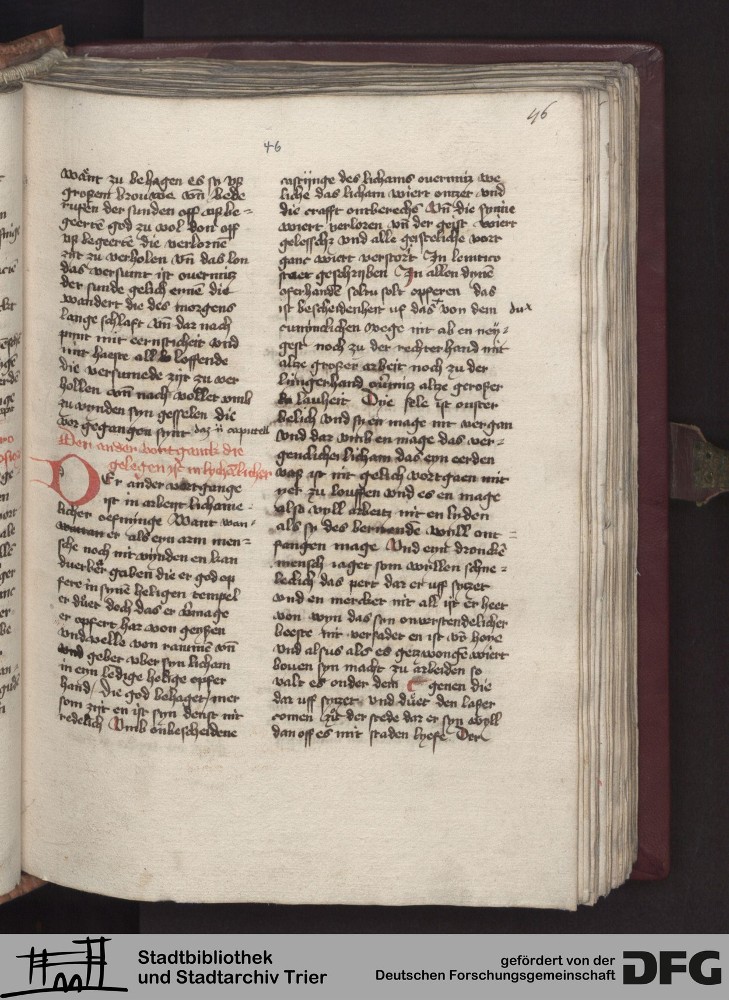 46
46
want zu behagen es sy vß
großem vnd bede
rufen der sunden off vß be=
geerte god zu wol don off
vß begeerte die verlorne
zijt zu verholen vnd das lon
das versumt ist ouermitz
der sunde gelich eime die
wandert die des morgens
lange schlaft vnd dar nach
pynt mit eernsticheit vnd
mit haeste all loffende
die versumede zijt zu ver
hollen vnd nach vollet vmb
zu vynden syn gesellen die
vor gegangen synt das ij capittell
Der ander vortganck die
gelegen ist in lychālicher
Er ander vortgange
ist in arbeyt lichame=
licher oefninge Want wan=
er als eyn arm men=
sche noch nit vynden en kan
duerber gaben die er god op
fere in syme heligen tempel
er duet doch das er vermage
er opfert har von geyßen
vnd velle von rammen vnd
geber vber syn licham
in eyn ledige helige opfer
hand die god behaget mer
som zijt en ist syn denst nit
redelich Vmb onbescheidene
castijnge des lichams ouermitz we
liche das licham wiert ontzet vnd
die crafft ontberechs Vnd die synne
wiert verloren vnd der geist wiert
geleschz vnd alle geistliche vort
ganc wiert verstort In leuitico
staet geschriben In allen dynē
oferhande saltu solt opferen das
ist bescheidenheit vf das von dem dux
cumincklichen wege nit ab en ney=
gest noch zu der rechter hand mit
altze großer arbeit noch zu der
lyngerhand ouermitz altze geroßer
lauheit Dye sele ist onster
belich vnd sy en mage nit vergan
Vnd dar vmb en mage das ver=
genclicher licham das eyn eerden
vaß ist nit gelich vortgaen mit
yer zu louffen vnd es en mage
also vyll arbeitz nit en lyden
als sy des bernende wyll ont=
fangen mage Vnd eyn dronckē
mensch iaget som wyllen schne=
lecklich das pert dar er vff sytzet
vnd en mercket nit all ist er heet
von wyn das syn onverstendelicher
beeste nit versadet en ist von hone
vnd alsus als es getzwongē wiert
bouen syn macht zu arbeiden so
valt es onder dem genen die
dar vff sytzet vnd duet den laßer
comen zu der stede dar er syn wyll
dan off es mit staden lyefe Der
Stadtbibliothek
und Stadtarchiv Trier
gefördert von der
Deutschen Forschungsgemeinschaft
DFG